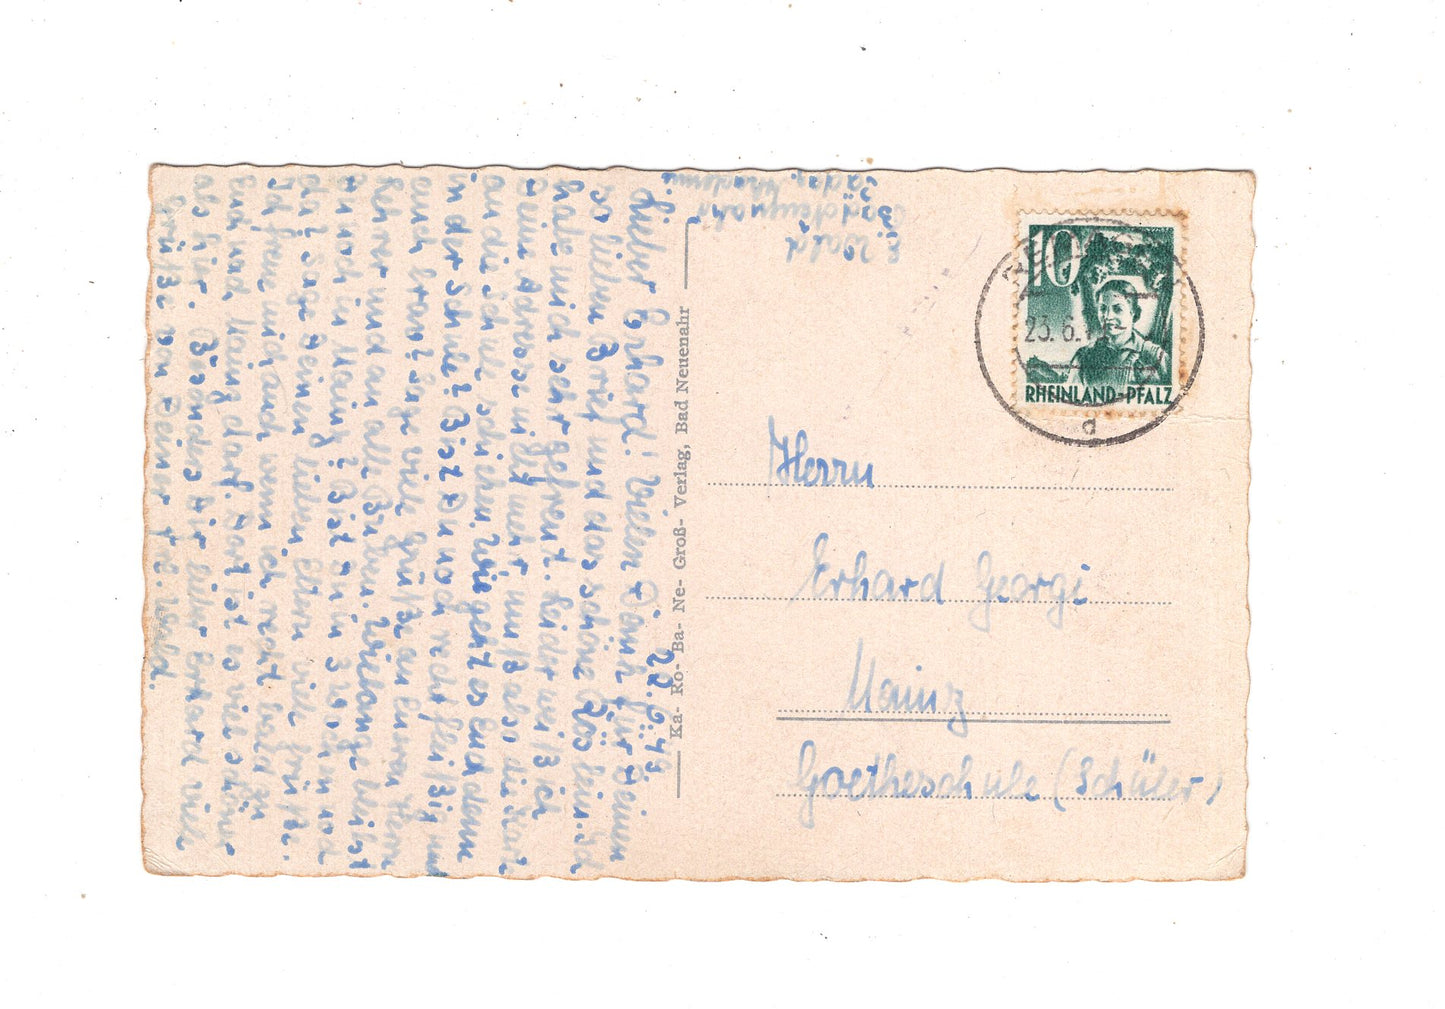 22.6.49.
Lieber Erhard! Vielen Dank für Deinen
so lieben Brief und das schöne Röslein. Ich
habe mich sehr gefreut. Leider weiß ich
Deine Adresse nicht mehr, muß also die Karte
an die Schule schicken. Wie geht es Euch denn
in der Schule? Bist Du noch recht fleißig und
auch brav? Sag viele Grüße an Euren Herrn
Lehrer und an alle Buben. Wie lange bleibst
Du noch in Mainz?
da? Sage Deinen lieben Eltern viele Grüße.
Ich freue mich auch wenn ich mal
und nach Mainz darf. Dort ist es viel schöner
als hier. Besonders Dir lieber Erhard viele
Grüße von Deiner Wald.
Wald
RHEINLAND-PFALZ
10
23.6.
d
Ka- Ro- Ba- Ne- Groß- Verlag, Bad Neuenahr
Herrn
Erhard Georgi
Mainz
Goetheschule (Schüler)